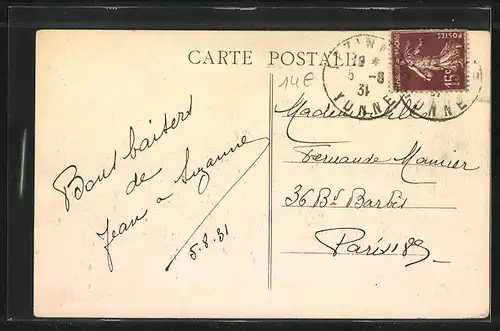 CARTE POSTALE
14E
19 *
5 -8
31
YONNE
YONNE
POSTES
15c
Bons baisers
de
Jean & Suzanne
5.8.31
Mademoiselle
Fernande
36 Bd Barbès
Paris 18e